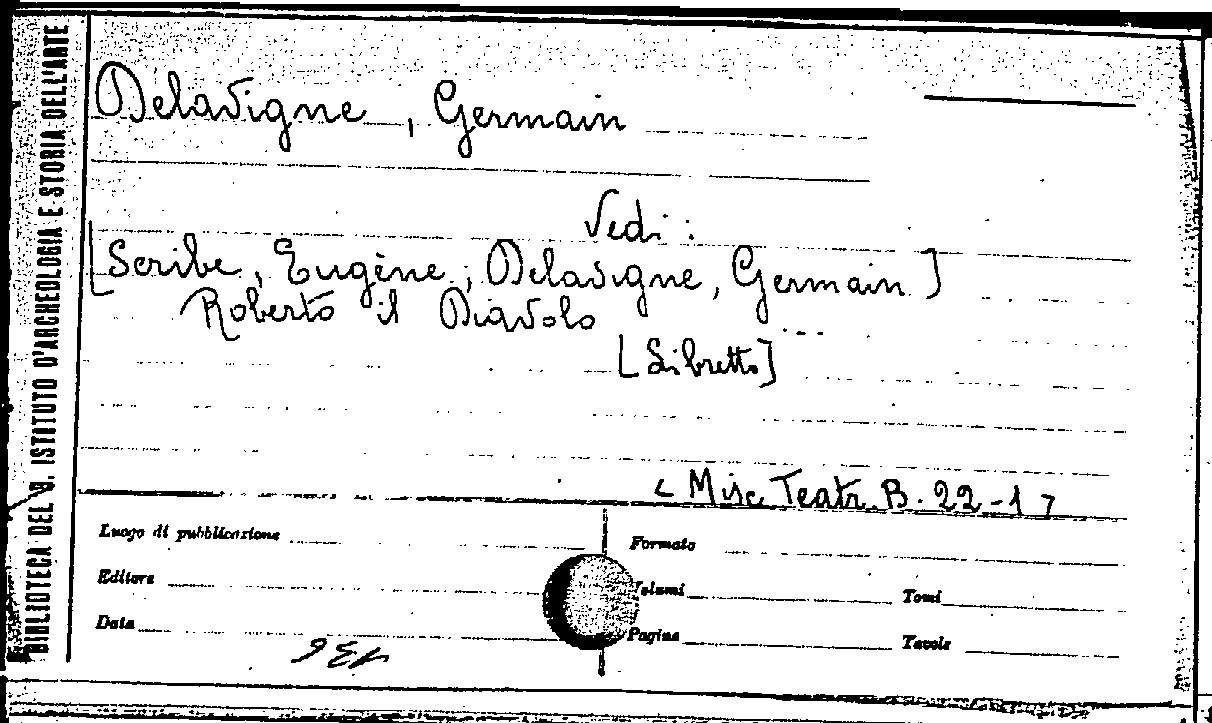 BIBLIOTECA DEL R. ISTITUTO D'ARCHEOLOGIA E STORIA DELL'ARTE
Delavigne, Germain
Vedi:
[Scribe, Eugène, Delavigne, Germain]
Roberto il Diavolo ...
[Libretto]
< Misc. Teatr. B. 22-1 >
Luogo di pubblicazione
Formato
Editore
Volumi
Tomi
Data
Pagine
Tavole
136